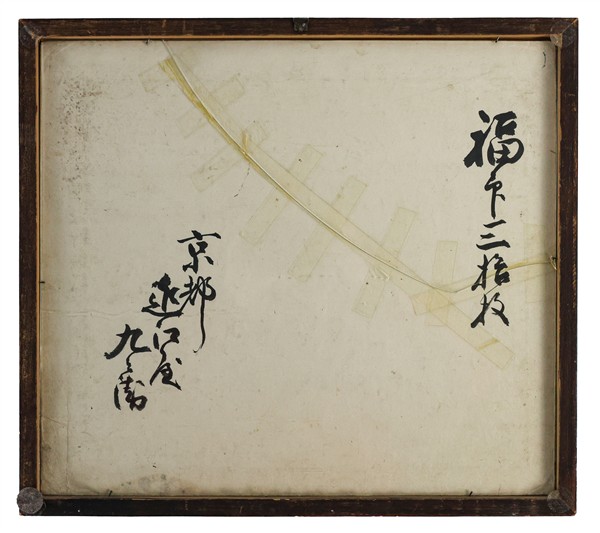 福印三拾枚
京都
近江屋
九兵衛